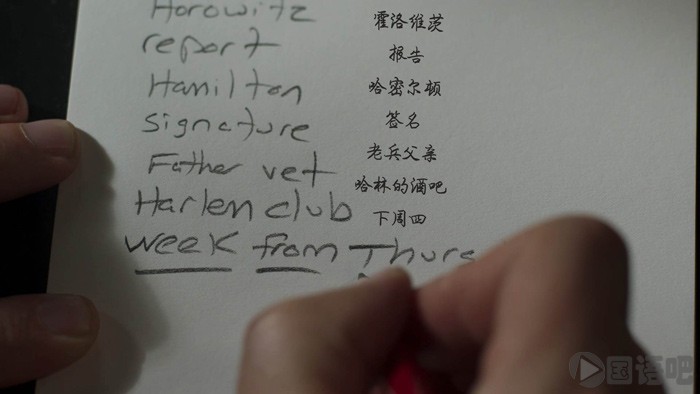 Horowitz 霍洛维茨
report 报告
Hamilton 哈密尔顿
Signature 签名
Father vet 老兵父亲
Harlen club 哈林的酒吧
week from Thurs 下周四
国语吧